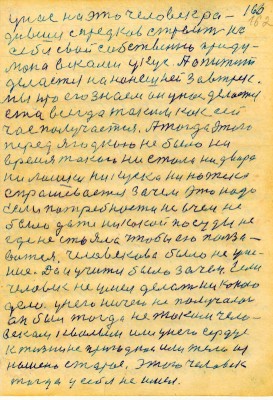 160
162
ужас на это человек ра-
дивши спредков строит на
себя свой собственный приду-
мона веками укус. А опытный
делается на нонешней завтрек.
мы про его знаем он ужас делает
ета всегда таким как сей
час получается. А тогда этого
перед людьми не было ни
время такого ни стола ни двора
ни ложки ни куска ни ножика
спрашивается зачем это надо
если потребности не в чем не
было дети никакой посуды не
где не стояла чтобы ею польз-
оваться. человека было не уме-
ние. Да и учить было зачем если
человек не умел делать никакого
дела. у него ничем не получалось
он был тогда не таким чело-
веком и
или у него сердце
к жизни не пригодное или тело из
ношено старое. этого человек
тогда у себя не имел.